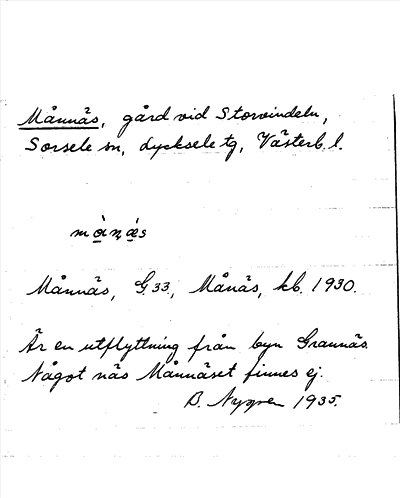 Månnäs, gård vid Storvindeln,
Sorsele sn, Lycksele tg, Västerb. l.
Månnäs, G. 33, Månäs, kb. 1930.
Är en utflyttning från byn Grannäs.
Något näs Månnäset finnes ej.
1935.